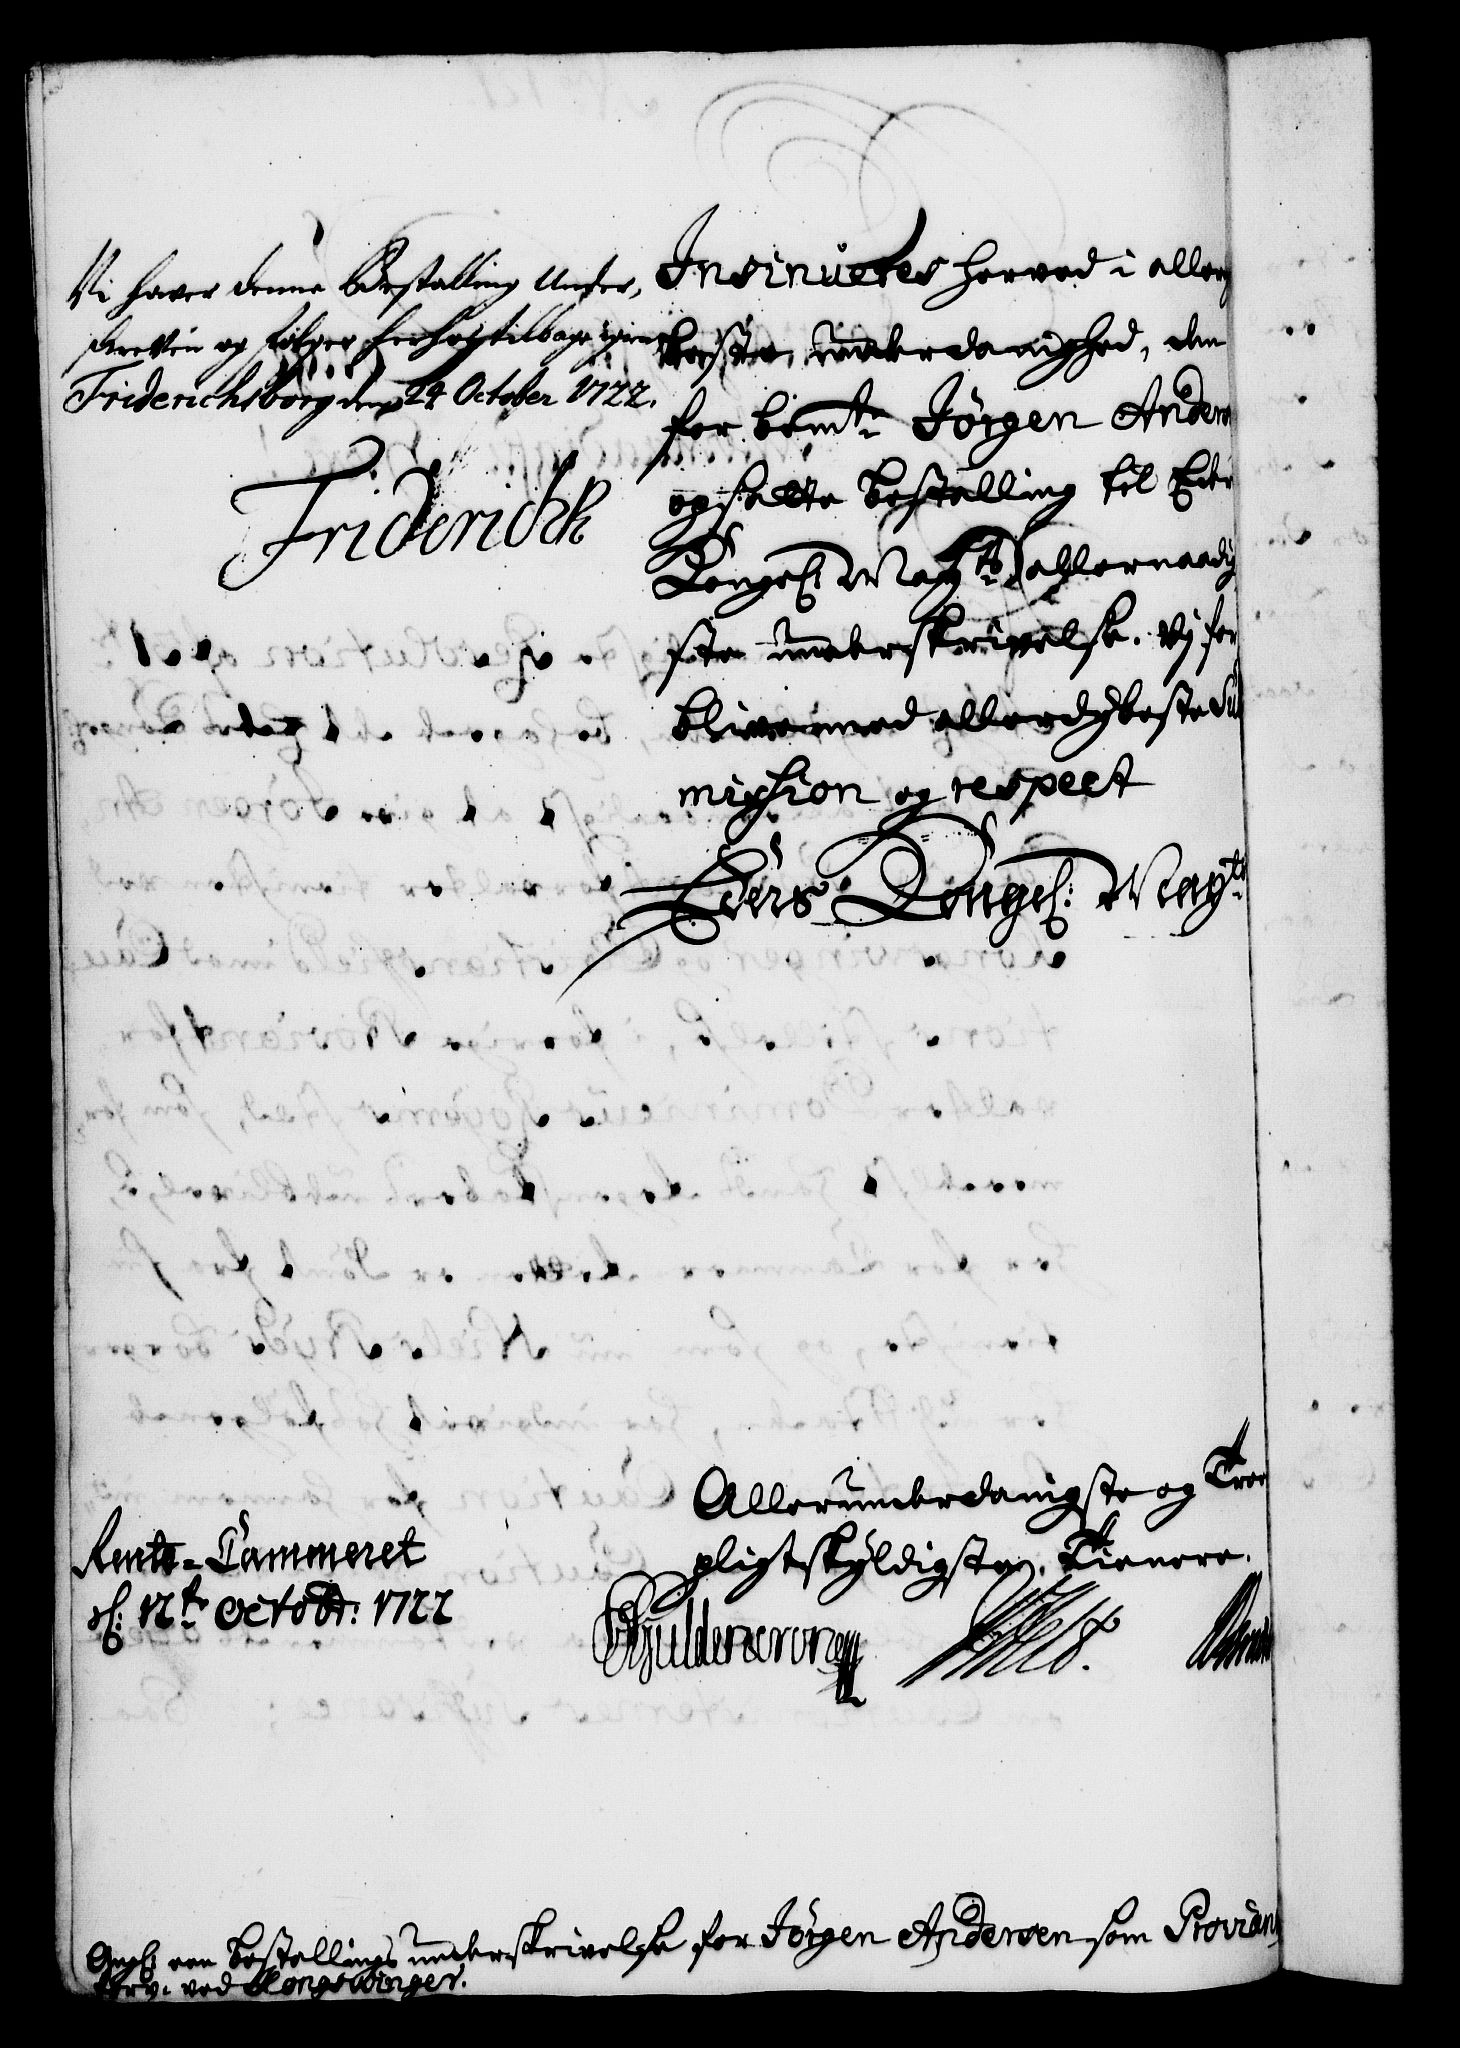 Vi haver denne Bestalling Under,
skreven og følger herhos tilbage igien
Friderichsborg den 24 October 1722.
Friderich
Insinueres herved i allerdy
beste underdanighed, den
for bemte Jörgen Anders
opsatte bestalling til Eders
Kongel: Mayts allernaadig
ste underskrivelse. Vy for
blive med allerdybeste Sub
mission og respect
Eders Kongel: Mayts
Allerunderdanigste og Troe
pligtskyldigste Tienere.
Rente-Cammeret
d: 12te Octobr: 1722
Güldencrone
Angl: een bestallings underskrivelse for Jörgen Andersen som Proviant
forv. ved Kongswinger.